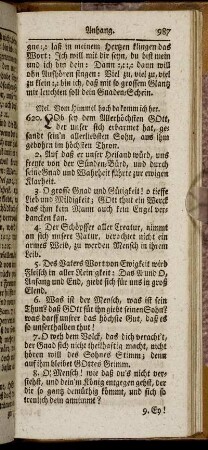 Anhang. 987
gne :,: laß in meinem Hertzen klingen das
Wort: Ich will mit dir seyn, du bist mein
und ich bin dein: Dann :,: :,: dann will
ohn Aufhören singen: Viel zu viel, zu viel,
zu klein :,: bin ich, daß mit so grossem Glantz
mir leuchten soll dein Gnaden-Schein.
Mel. Vom Himmel hoch da komm ich her.
620. LOb sey dem Allerhöchsten GOtt,
der unser sich erbarmet hat, ge-
sandt sein'n allerliebsten Sohn, aus ihm
gebohrn im höchsten Thron.
2. Auf daß er unser Heiland würd, uns
freyte von der Sünden-Bürd, und durch
seine Gnad und Wahrheit führte zur ewigen
Klarheit.
3. O grosse Gnad und Gütigkeit! o tieffe
Lieb und Mildigkeit; GOtt thut ein Werck
das ihm kein Mann auch kein Engel ver-
dancken kan.
4. Der Schöpffer aller Creatur, nimmt
an sich unsre Natur, verachtet nicht ein
armes Weib, zu werden Mensch in ihrem
Leib.
5. Des Vaters Wort von Ewigkeit wird
Fleisch in aller Reinigkeit: Das A und O,
Anfang und End, giebt sich für uns in groß
Elend.
6. Was ist der Mensch, was ist sein
Thun? daß GOtt für ihn giebt seinen Sohn?
was darff unser das höchste Gut, daß es
so unserthalben thut!
7. O weh dem Volck, das dich veracht't,
der Gnad sich nicht theilhaftig macht, nicht
hören will des Sohnes Stimm; denn
auf ihm bleibet GOttes Grimm.
8. O! Mensch! wie daß du's nicht ver-
stehst, und dein'm König entgegen gehst, der
dir so gantz demüthig kömmt, und sich so
treulich dein annimmt?
9. Ey!